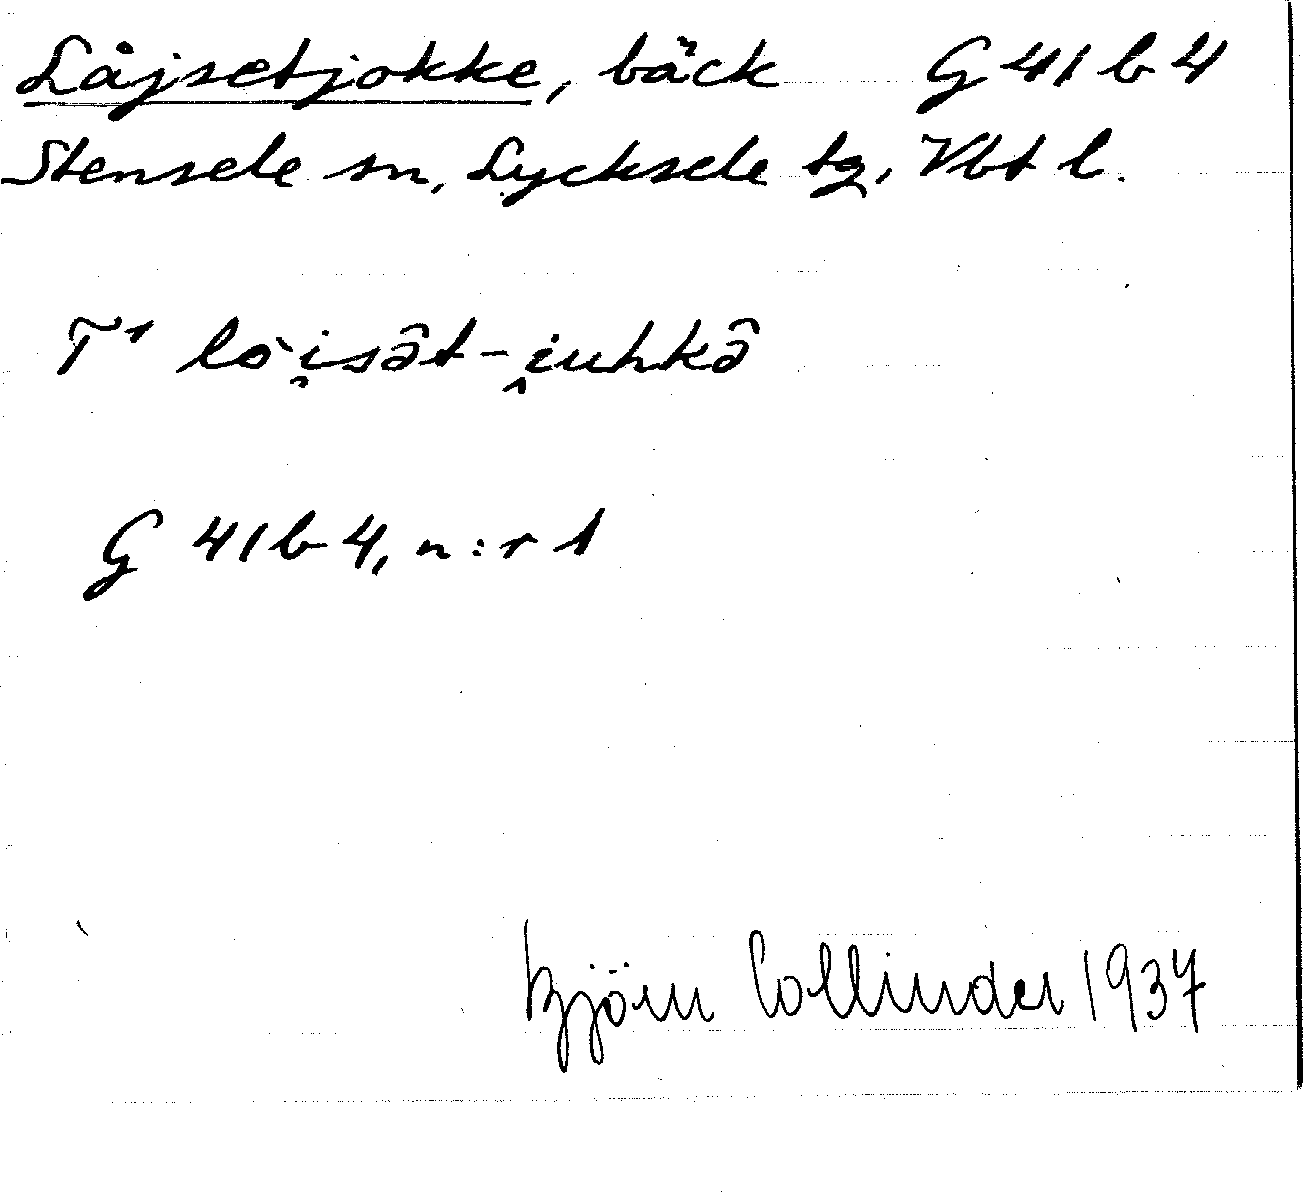 Låjsetjokke, bäck G 41 b 4
Stensele sn, Lycksele tg, Vbt l.
T¹ lo`i̯sât-i̯uhkâ
G 41 b 4, n:r 1
Björn Collinder 1937